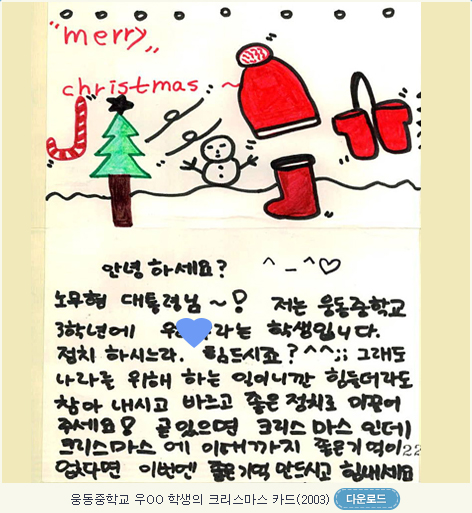 "merry"
christmas ~
안녕하세요? ^_^♡
노무현 대통령님~! 저는 웅동중학교
3학년에 우 라는 학생입니다.
정치 하시느라. 힘드시죠?^^;; 그래도
나라를 위해 하는 일이니깐 힘들더라도
참아 내시고 바르고 좋은 정치로 이끌어
주세요! 곧 있으면 크리스마스 인데
크리스마스에 이때까지 좋은기억이 22
없다면 이번엔 좋은기억 만드시고 힘내세요
웅동중학교 우OO 학생의 크리스마스 카드(2003) 다운로드